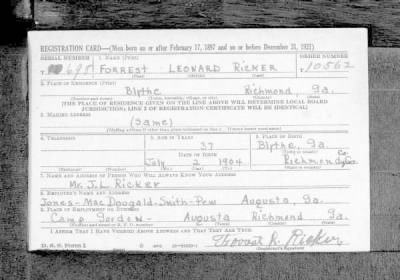 REGISTRATION CARD—(Men born on or after February 17, 1897 and on or before December 31, 1921)
SERIAL NUMBER 1. NAME (Print) ORDER NUMBER
T 698 FORREST LEONARD RICKER T10562
(First) (Middle) (Last)
2. PLACE OF RESIDENCE (Print)
Blythe Richmond, Ga.
(Number and street) (Town, township, village, or city) (County) (State)
[THE PLACE OF RESIDENCE GIVEN ON THE LINE ABOVE WILL DETERMINE LOCAL BOARD
JURISDICTION; LINE 2 OF REGISTRATION CERTIFICATE WILL BE IDENTICAL]
3. MAILING ADDRESS
(Same)
4. TELEPHONE 5. AGE IN YEARS 6. PLACE OF BIRTH
37 Blythe, Ga.
DATE OF BIRTH
July 2 1904 Richmond Co.
7. NAME AND ADDRESS OF PERSON WHO WILL ALWAYS KNOW YOUR ADDRESS
Mr. J. L. Ricker
8. EMPLOYER'S NAME AND ADDRESS
Jones-MacDougald-Smith-Pew Augusta, Ga.
9. PLACE OF EMPLOYMENT OR BUSINESS
Camp Gordon - Augusta Richmond Ga.
(Town) (County) (State)
I AFFIRM THAT I HAVE VERIFIED ABOVE ANSWERS AND THAT THEY ARE TRUE.
D. S. S. Form 1
Forrest L. Ricker
(Registrant's signature)